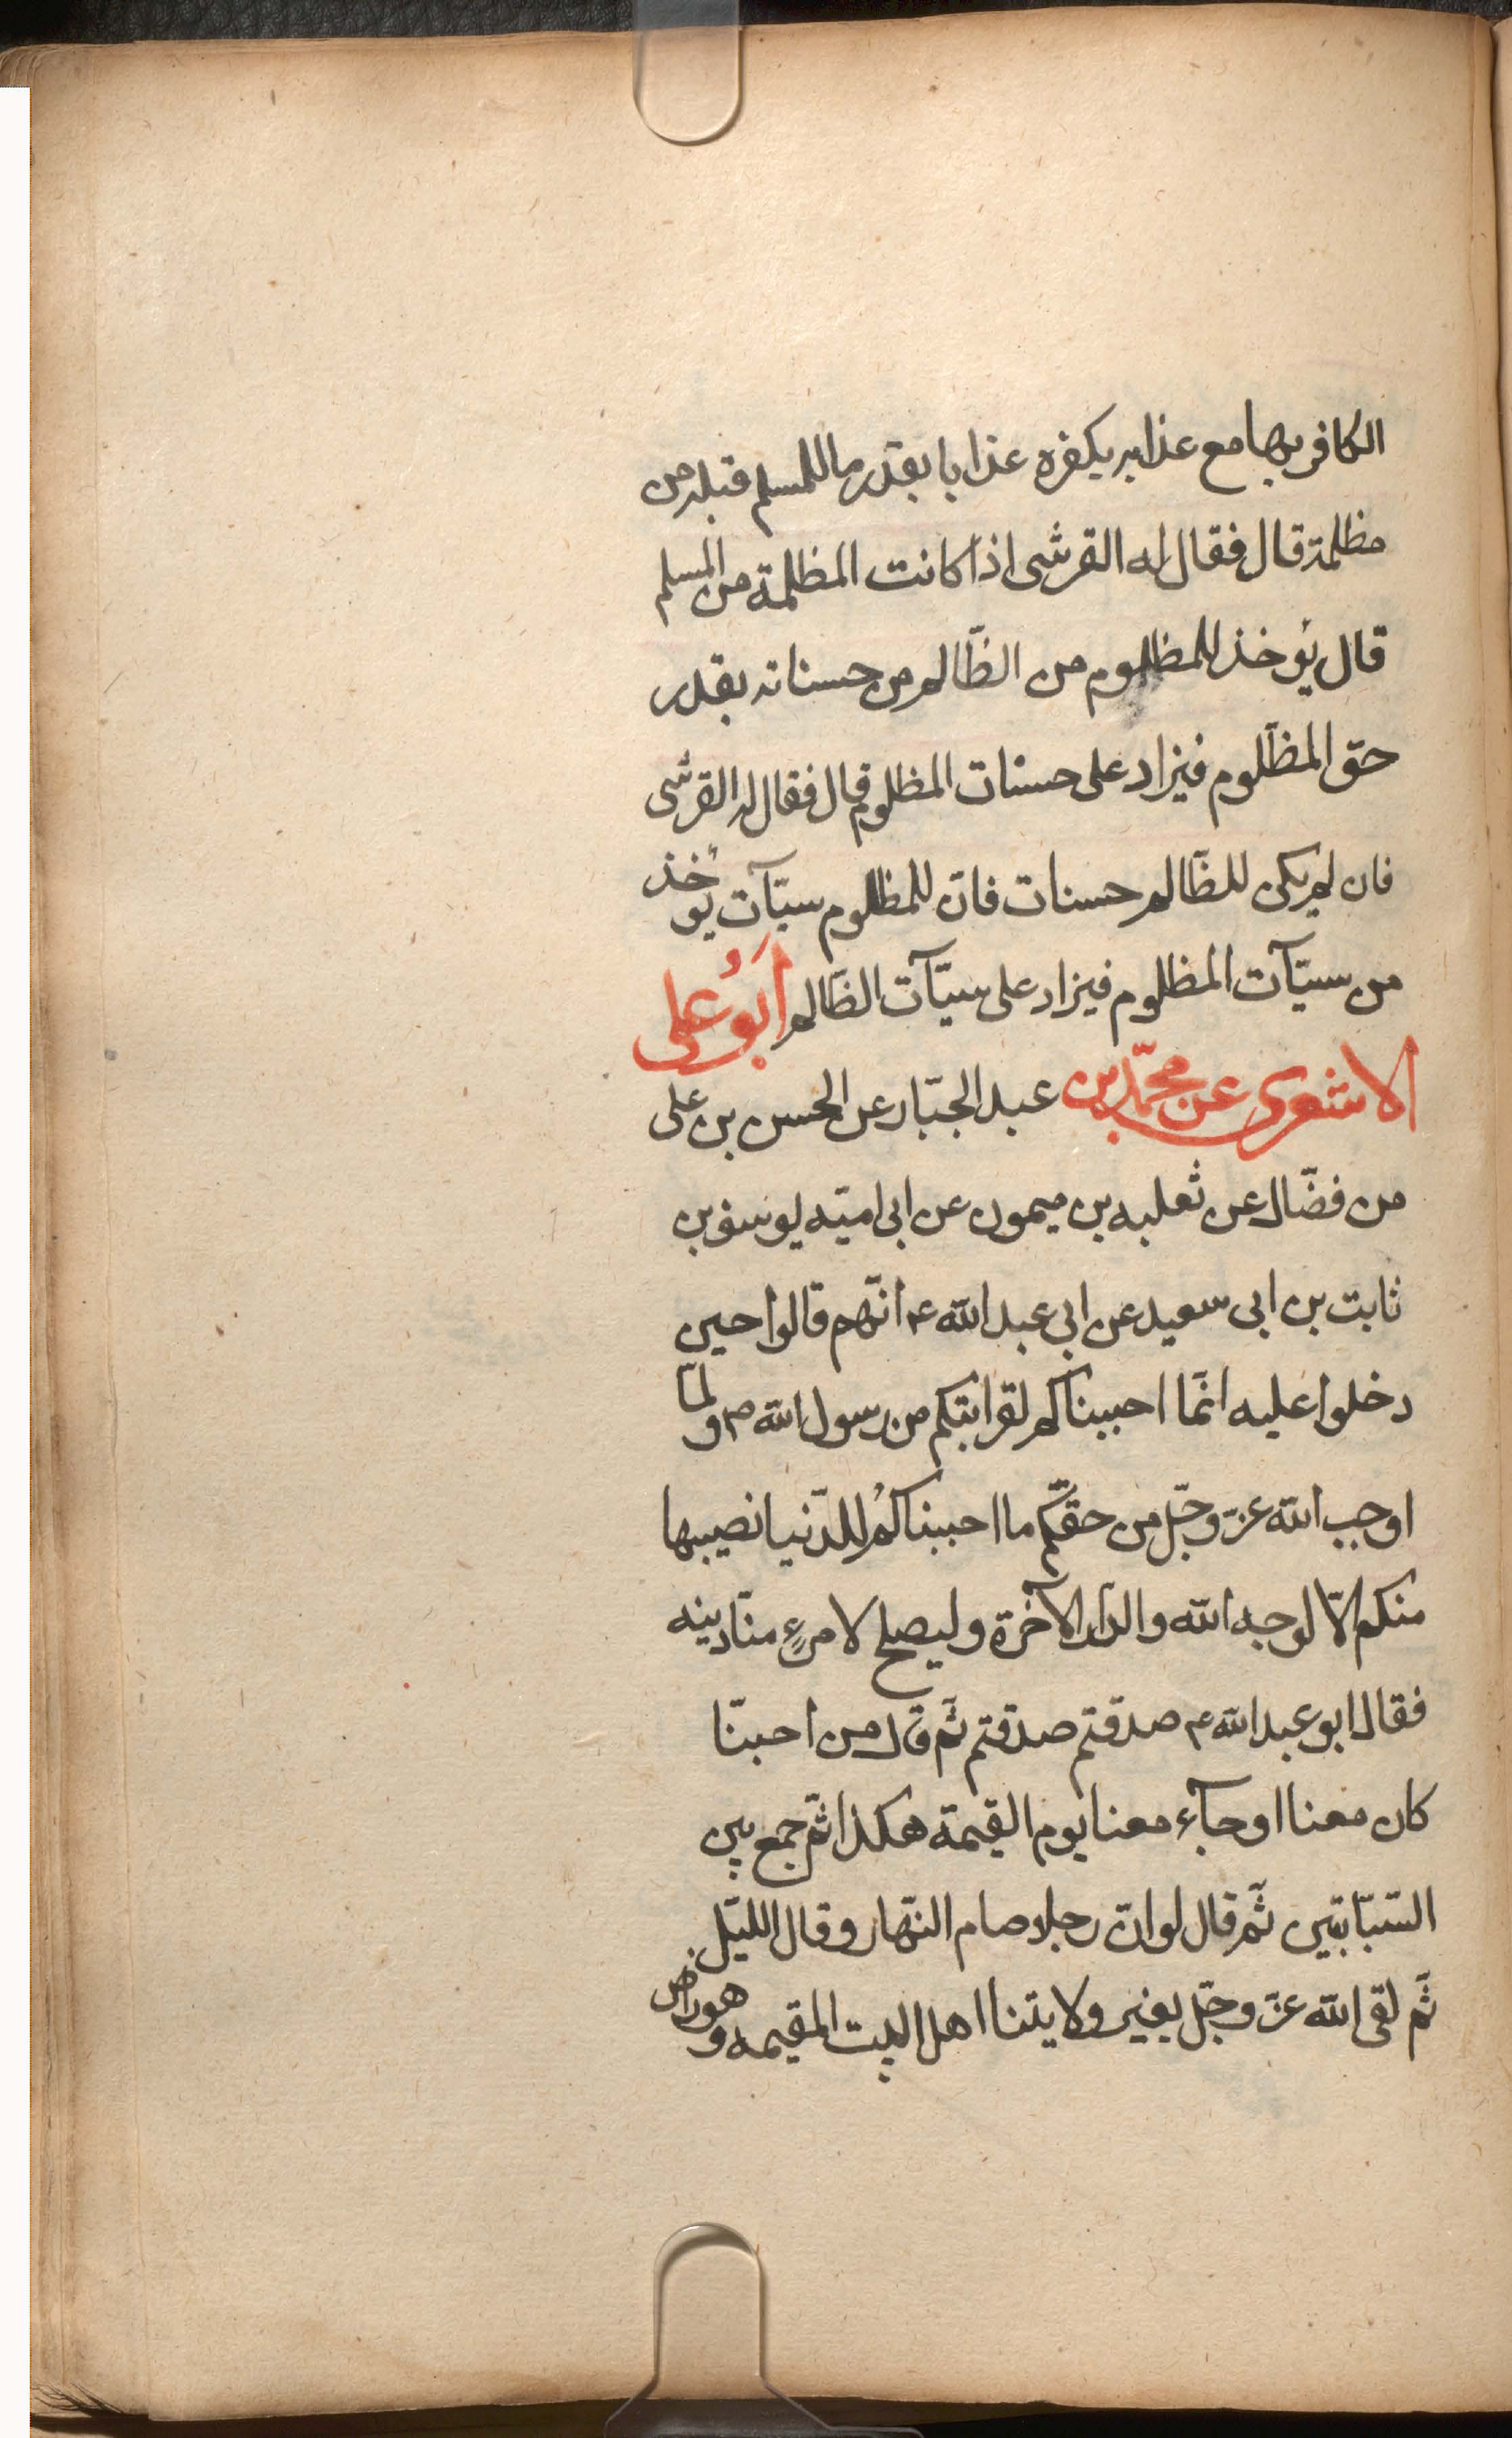 الكافر بها مع عذابه بكفره عذابا بقدر ما للمسلم قبله من
مظلمة قال فقال له القرشى اذا كانت المظلمة من المسلم
قال يؤخذ للمظلوم من الظّالم من حسناته بقدر
حق المظلوم فيزاد على حسنات المظلوم قال فقال له القرشى
فان لم يكن للظّالم حسنات فانّ للمظلوم سيّآت يؤخذ
من سيّآت المظلوم فيزاد على سيّآت الظّالم اَبُو على
الاشعرى عن محمّد بن عبد الجبّار عن الحسن بن على
من فضّال عن ثعلبه بن ميمون عن ابى اميّه يوسف بن
ثابت بن ابى سعيد عن ابى عبد الله ع انّهم قالوا حين
دخلوا عليه انّما احببناكم لقرابتكم من رسول الله ص ولما
اوجب الله عزّ وجلّ من حقّكم ما احببناكُم للدّنيا نصيبها
منكم الّا لوجه الله والدّار الآخرة وليصلح لامرءٍ منّا دينه
فقال ابو عبد الله ع صدقتم صدقتم ثمّ قال من احبّنا
كان معنا او جآء معنا يوم القيمة هكذا ثمّ جمع بين
السّبّابتين ثمّ قال لو انّ رجلا صام النّهار وقال اللّيل
ثمّ لقى الله عزّ وجلّ بغير ولايتنا اهل البيت المقيمه وهو راض